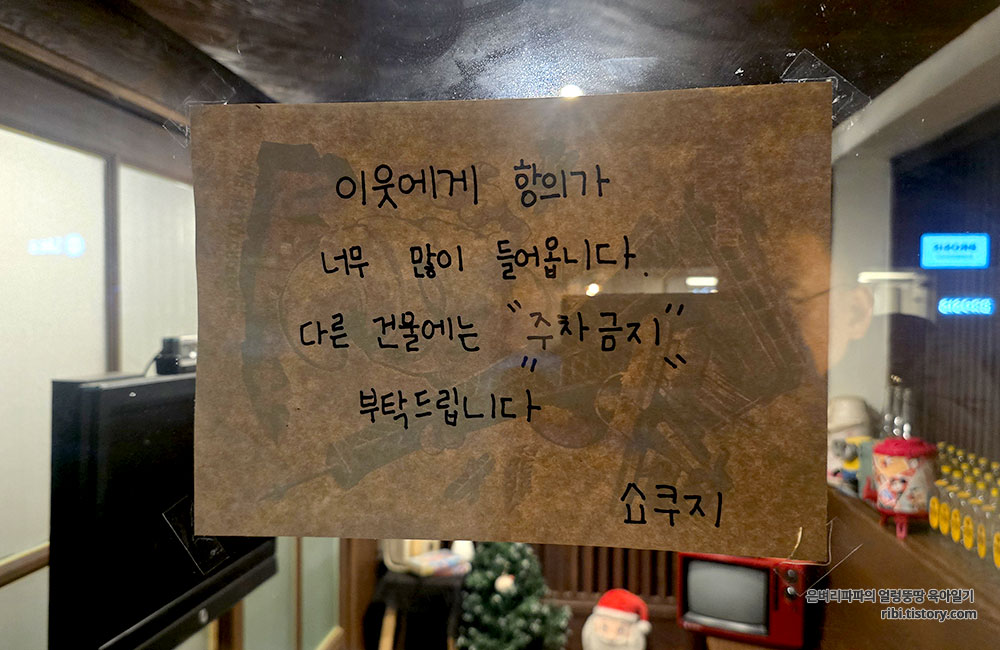 이웃에게 항의가
너무 많이 들어옵니다.
다른 건물에는 "주차금지"
부탁드립니다
쇼쿠지
은벼리파파의 얼렁뚱땅 육아일기
ribi.tistory.com